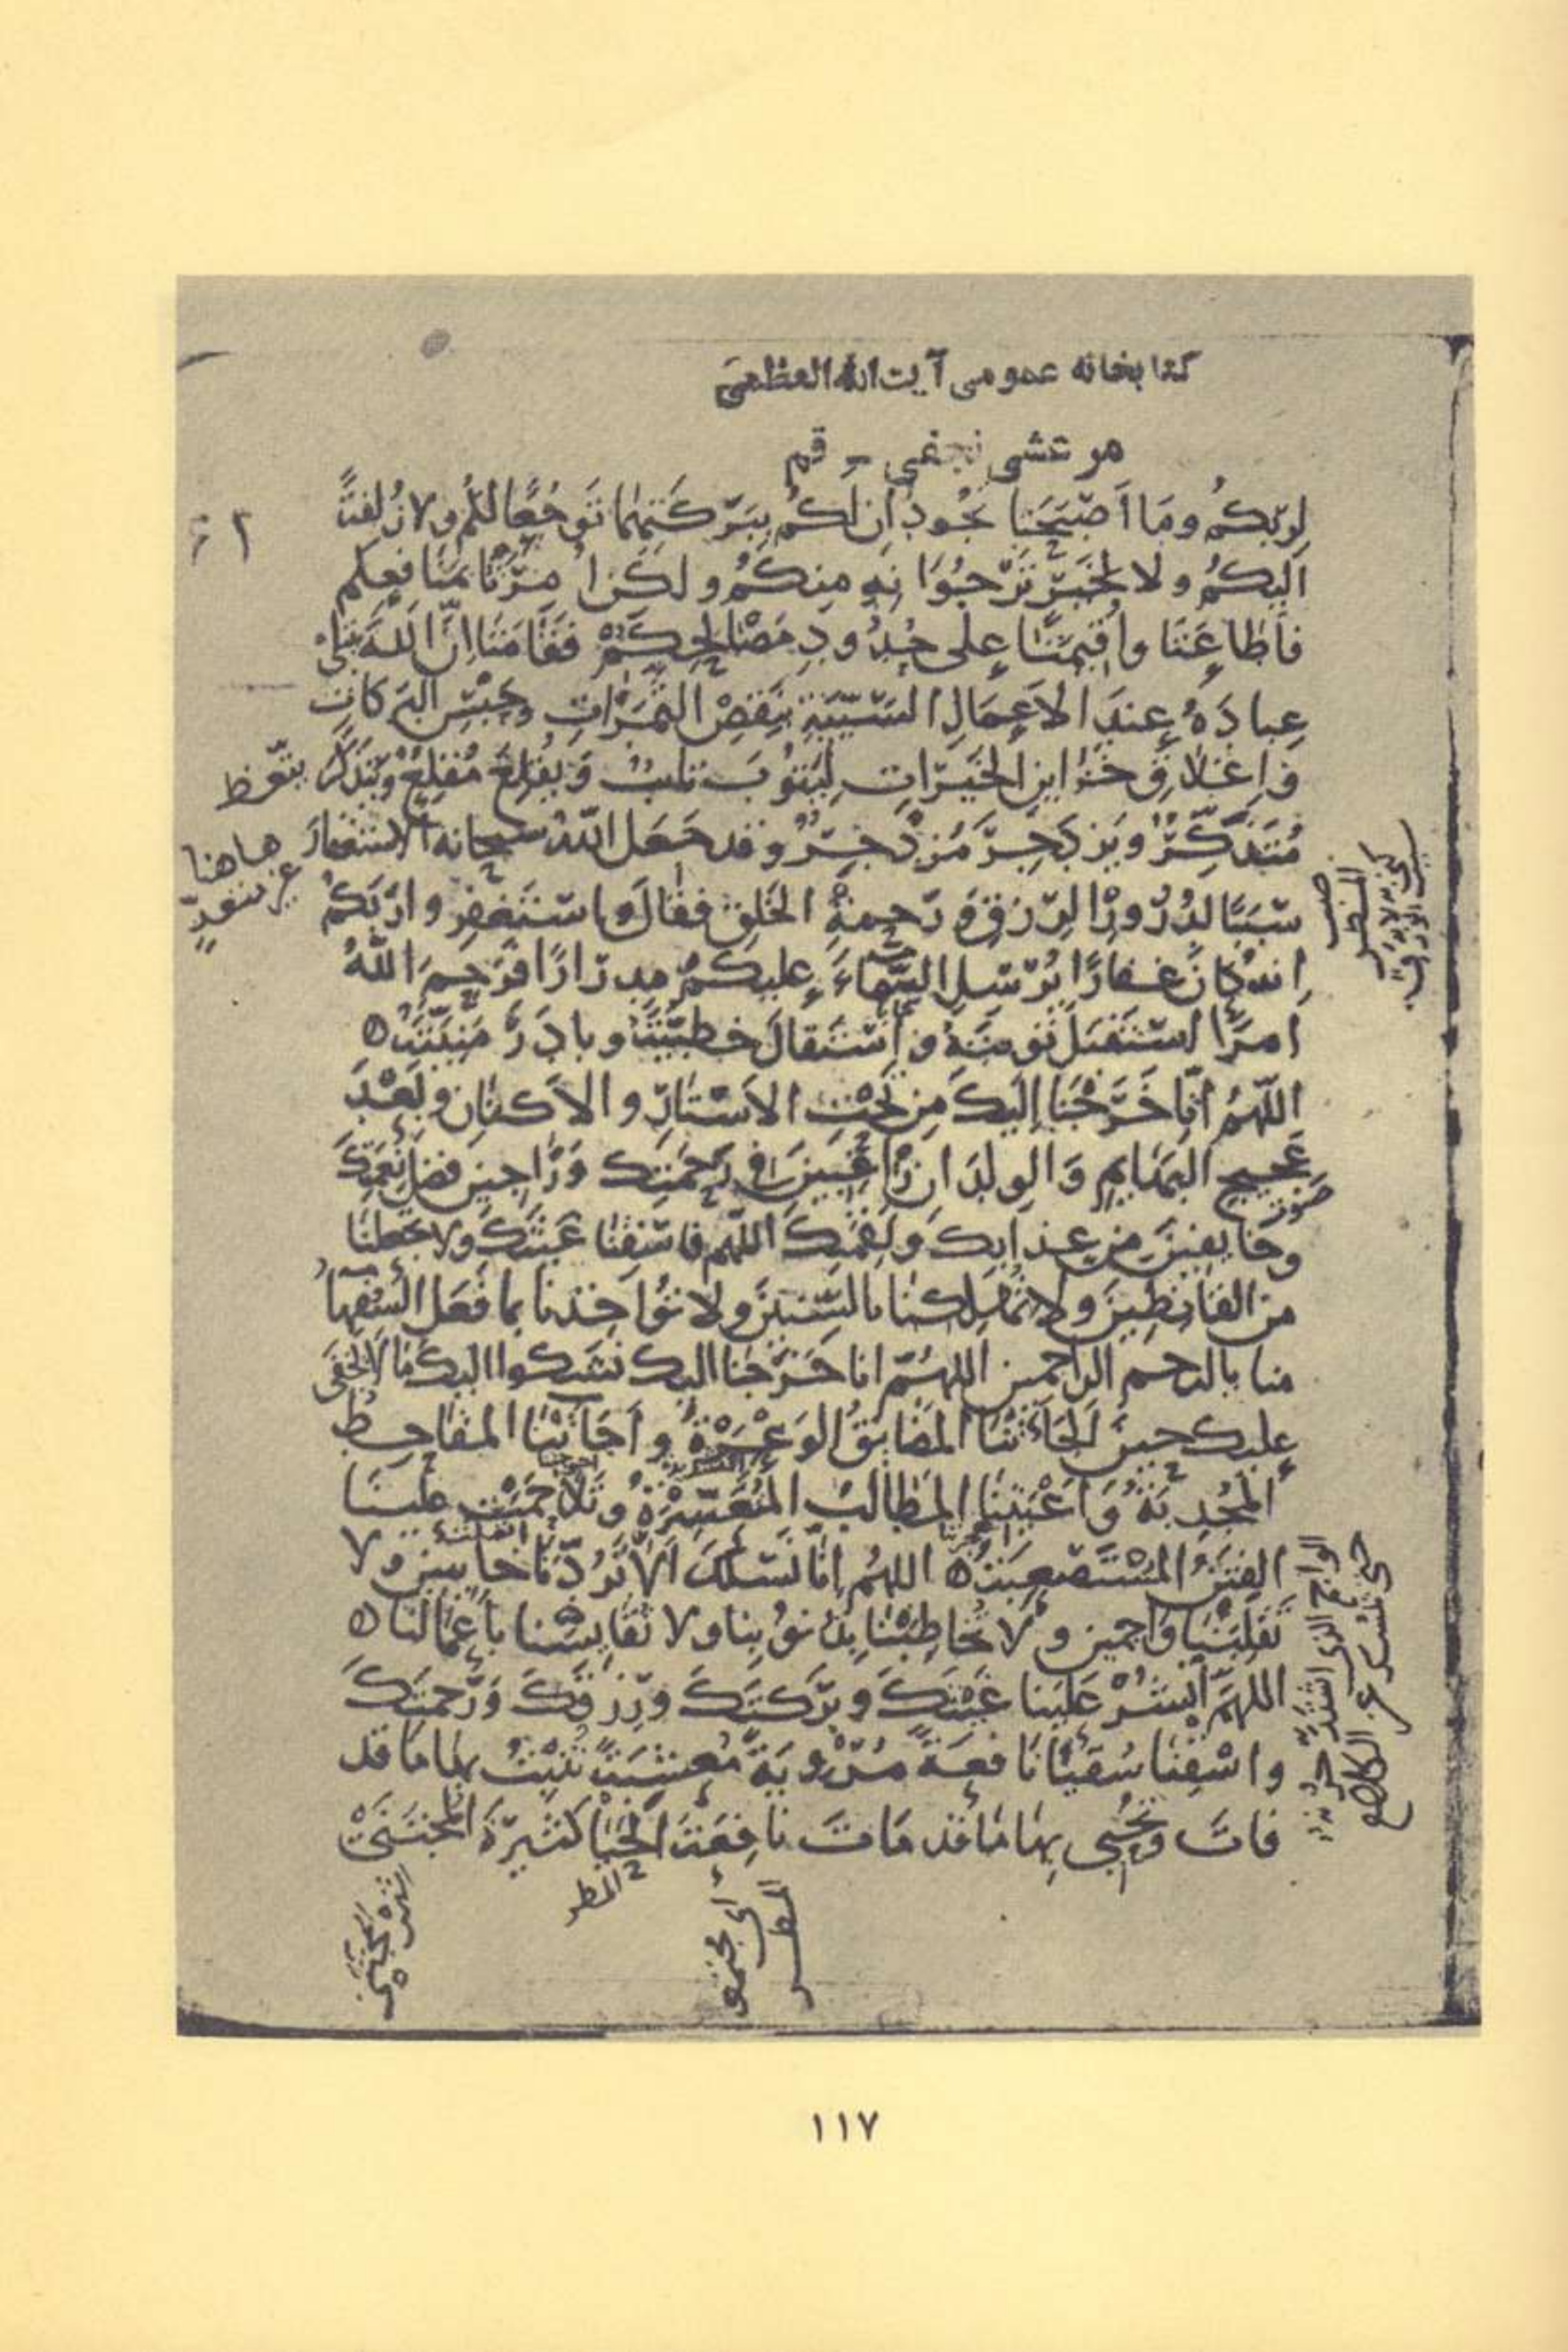 كتابخانه عمومى آيت الله العظمى
مرعشى نجفى - قم
لِرَبِّكُم وَمَا اَصْبَحَتَا تَجُودَانِ لَكُم بِبَرَكَتِهِمَا تَوَجُّعًا لَكُم وَلَا زُلْفَةً
اِلَيكُم وَلَا لِخَيْرٍ تَرْجُوَانِهِ مِنكُم وَلَكِن اُمِرَتَا بِمَنَافِعِكُم
فَاَطَاعَتَا وَاُقِيمَتَا عَلَى حُدُودِ مَصَالِحِكُمْ فَقَامَتَا اِنَّ اللّٰهَ يَبْتَلِى
عِبَادَهُ عِندَ الاَعمَالِ السَّيِّئَةِ بِنَقْصِ الثَّمَرَاتِ وَحَبْسِ البَرَكَاتِ
وَاِغلَاقِ خَزَائِنِ الخَيْرَاتِ لِيَتُوبَ تَائِبٌ وَيُقْلِعَ مُقْلِعٌ وَيَتَذَكَّرَ
يتّعظ
مُتَذَكِّرٌ وَيَزْدَجِرَ مُزْدَجِرٌ وقد جَعَلَ اللّٰهُ سبحانه الاستغفارَ
هاهنا
سَبَبًا لِدُرُورِ الرِّزْقِ وَرَحمةِ الخَلقِ فقال وَاسْتَغفِرُوا رَبَّكُم
اِنّهُ كَانَ غَفَّارًا يُرْسِلِ السَّمَاءَ عَلَيكُم مِدرَارًا فَرَحِمَ اللّٰهُ
امرَأً اسْتَقبَلَ تَوبَتَهُ وَاسْتَقَالَ خَطِيئَتَهُ وبادَرَ مَنِيَّتَهُ
اللّٰهُمَّ اِنَّا خَرَجْنَا اِلَيكَ مِن تَحْتِ الاَسْتَارِ والاَكنَانِ وَبَعْدَ
عَجِيجِ البَهَائِمِ وَالوِلدَانِ رَاغِبِينَ فى رَحمَتِك وَرَاجِينَ فَضلَ نِعمَتِكَ
صوت
وَخَائِفِينَ مِن عَذَابِكَ وَنِقمَتِكَ اللّٰهُمّ فَاسْقِنَا غَيثَكَ وَلَا تَجعَلنَا
مِنَ القَانِطِينَ وَلَا تُهلِكنَا بِالسِّنِينَ وَلَا تُؤَاخِذنَا بِمَا فَعَلَ السُّفَهَاءُ
مِنّا يا ارحم الراحمين اللهُمّ انا خَرَجْنَا اليك نَشْكُوا اليكَ مَا لَا يَخْفَى
عَلَيك حِينَ اَلْجَأَتْنَا المَضَايِقُ الوَعْرَةُ وَاَجَاءَتْنَا المَقَاحِطُ
المُجْدِبَةُ وَاَعْيَتْنَا المَطَالِبُ المُتَعَسِّرَةُ وَتَلَاحَمَتْ عَلَينَا
الفِتَنُ المُسْتَصعِبَةُ اللهُم اِنَّا نَسْئَلُكَ اَلَّا تَرُدَّنَا خَائِبِينَ وَلَا
تَقْلِبَنَا وَاجِمِينَ وَلَا تُخَاطِبْنَا بِذُنُوبِنَا وَلَا تُقَايِسْنَا بِاَعْمَالِنَا
اللهُمَّ انْشُرْ عَلَينَا غَيْثَكَ وَبَرَكَتَكَ وَرِزْقَكَ وَرَحمَتَكَ
وَاسْقِنَا سُقيًا نَافِعَةً مُرْوِيَةً مُعشِبَةً تُنبِتُ بِهَا مَا قَد
فَاتَ وَتُحْيِى بِهَا مَا قَد مَاتَ نَافِعَةَ الحَيَا كَثِيرَةَ المُجتَنَى
المطر
١١٧